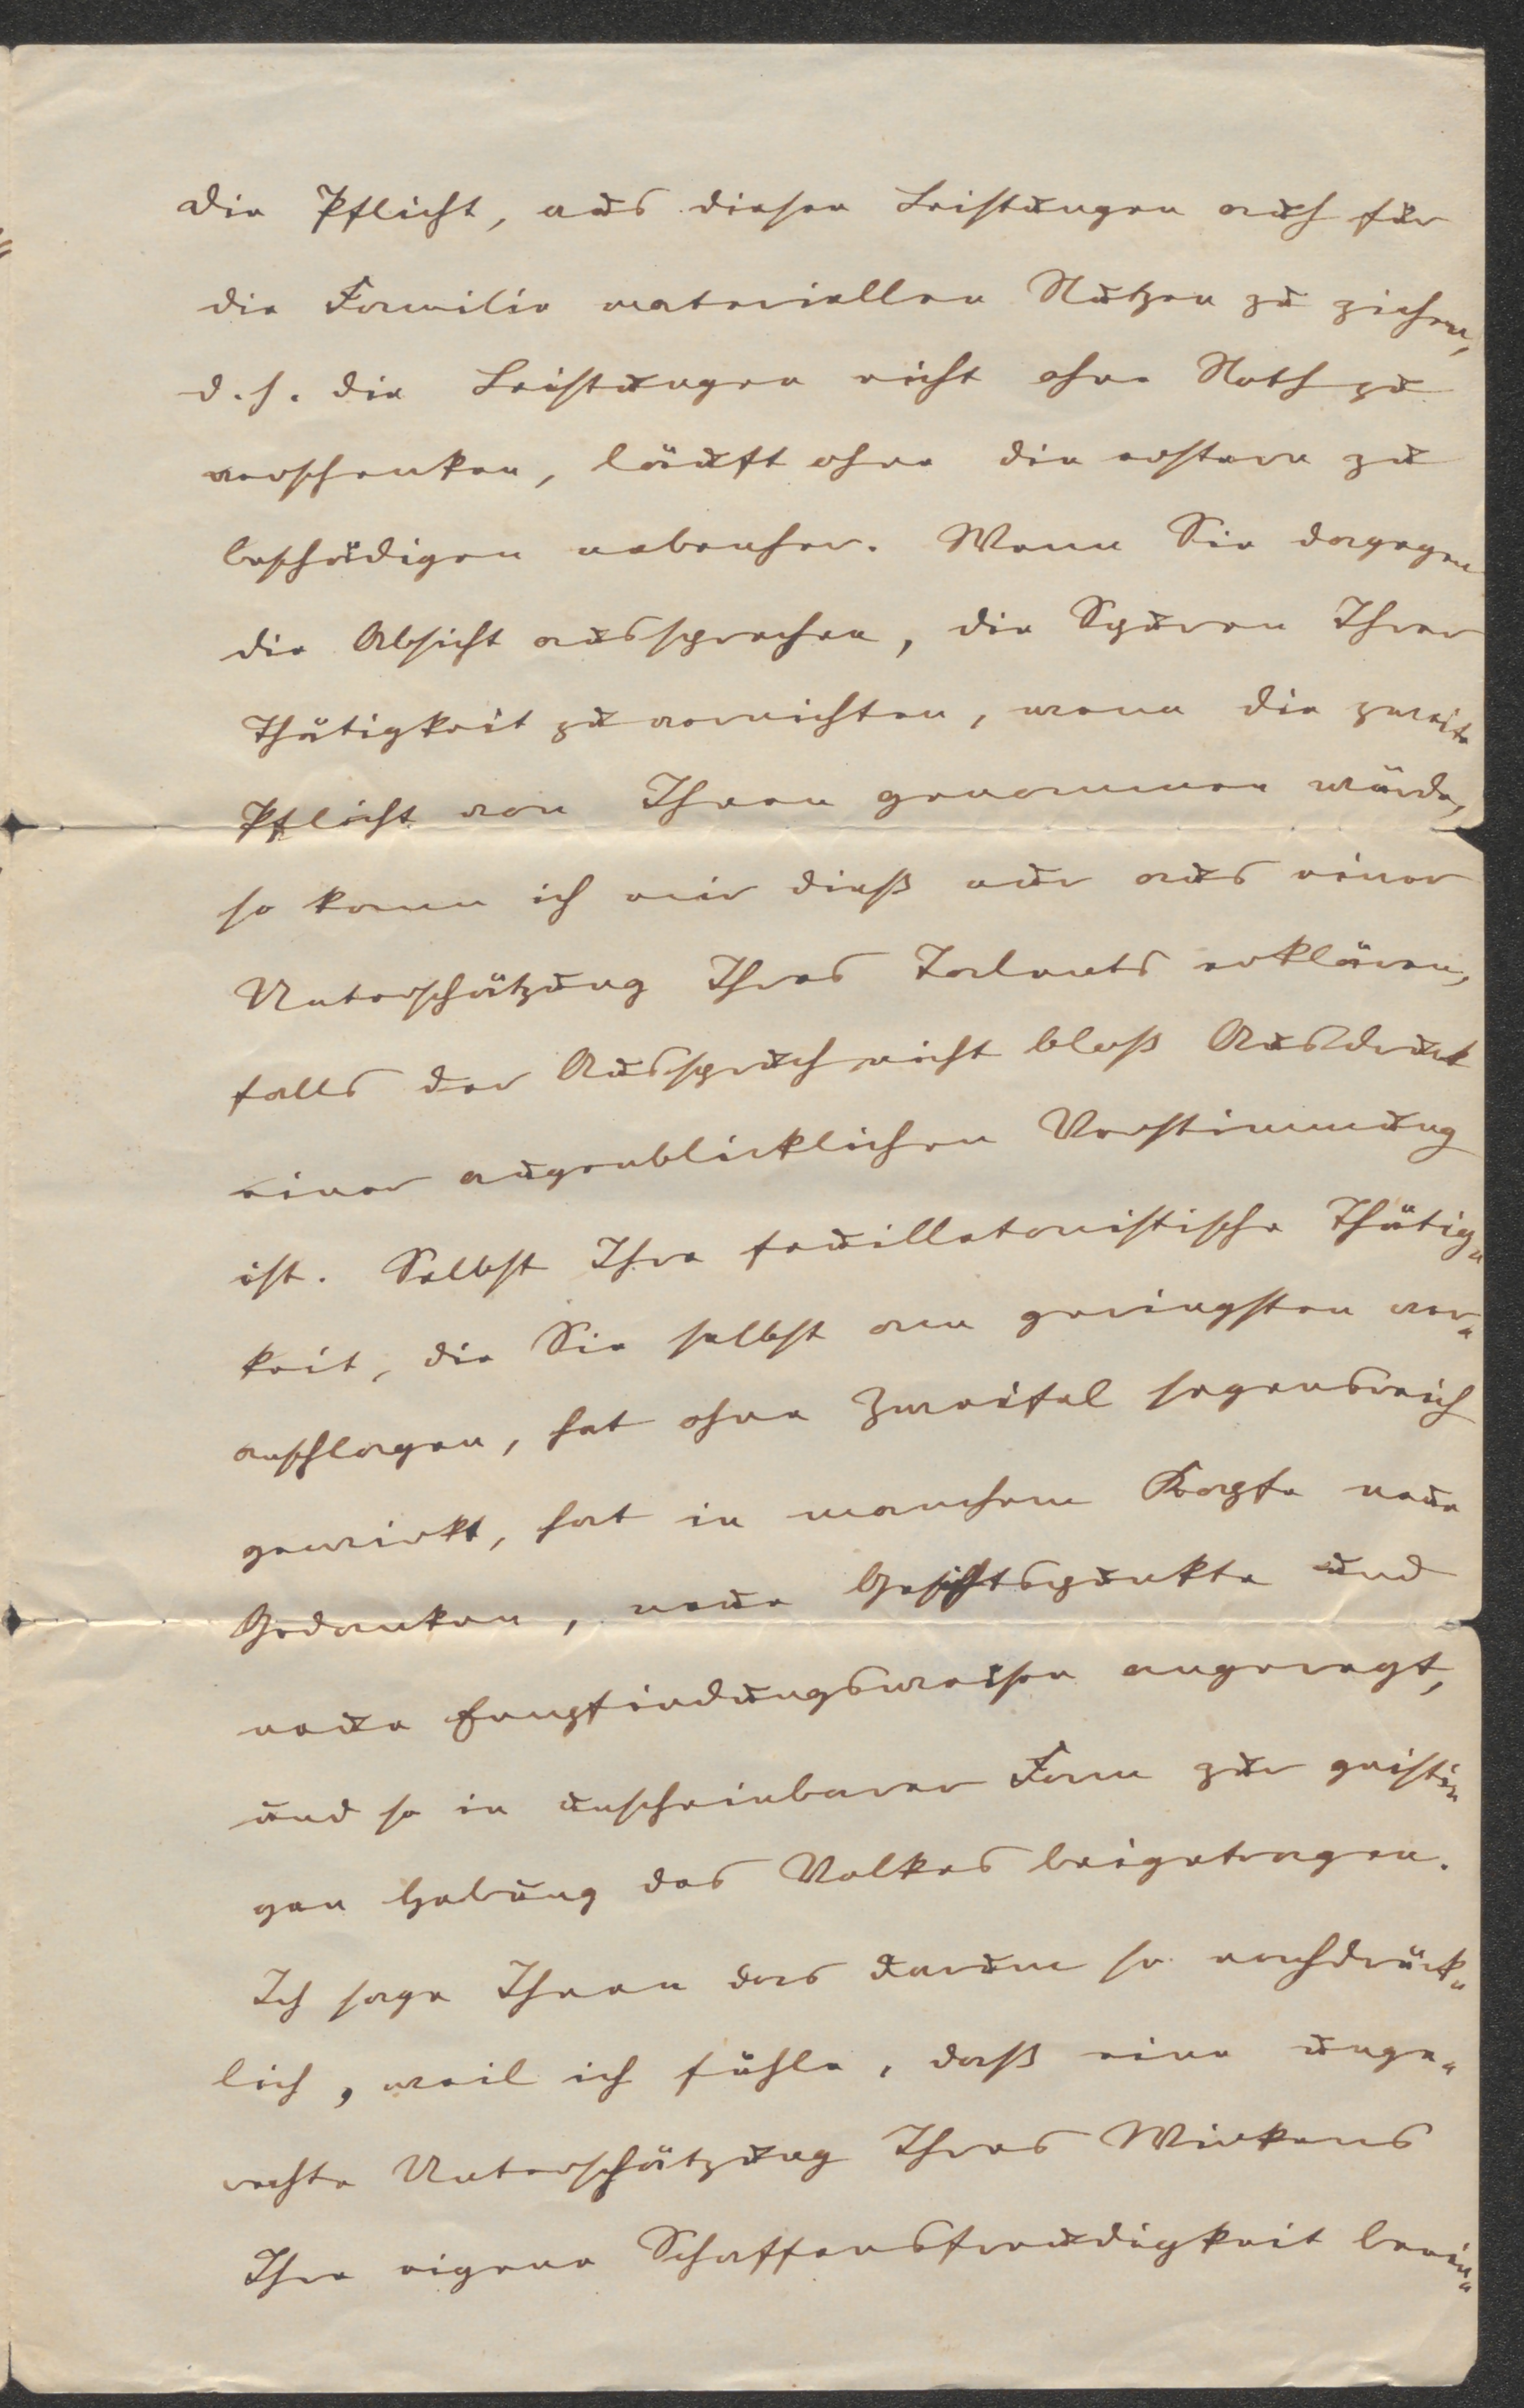 die Pflicht, aus diesen Leistungen auch für
die Familie materiellen Nutzen zu ziehen,
d. h. die Leistungen nicht ohne Noth zu
verschenken, läuft ohne die erstere zu
beschädigen nebenher. Wenn Sie dagegen
die Absicht aussprechen, die Spuren Ihrer
Thätigkeit zu vernichten, wenn die zweite
Pflicht von Ihnen genommen würde,
so kann ich mir dieß nur aus einer
Unterschätzung Ihres Talents erklären,
falls der Ausspruch nicht bloß Ausdruck
einer augenblicklichen Verstimmung
ist. Selbst Ihre feuilletonistische Thätig„
keit, die Sie selbst am geringsten ver„
anschlagen, hat ohne Zweifel segensreich
gewirkt, hat in manchem Kopfe neue
Gedanken, neue Gesichtspunkte und
neue Empfindungsweisen angeregt,
und so in unscheinbarer Form zur geisti„
gen Hebung des Volkes beigetragen.
Ich sage Ihnen das darum so nachdrück„
lich, weil ich fühle, daß eine unge„
rechte Unterschätzung Ihres Wirkens
Ihre eigene Schaffensfreudigkeit beein„